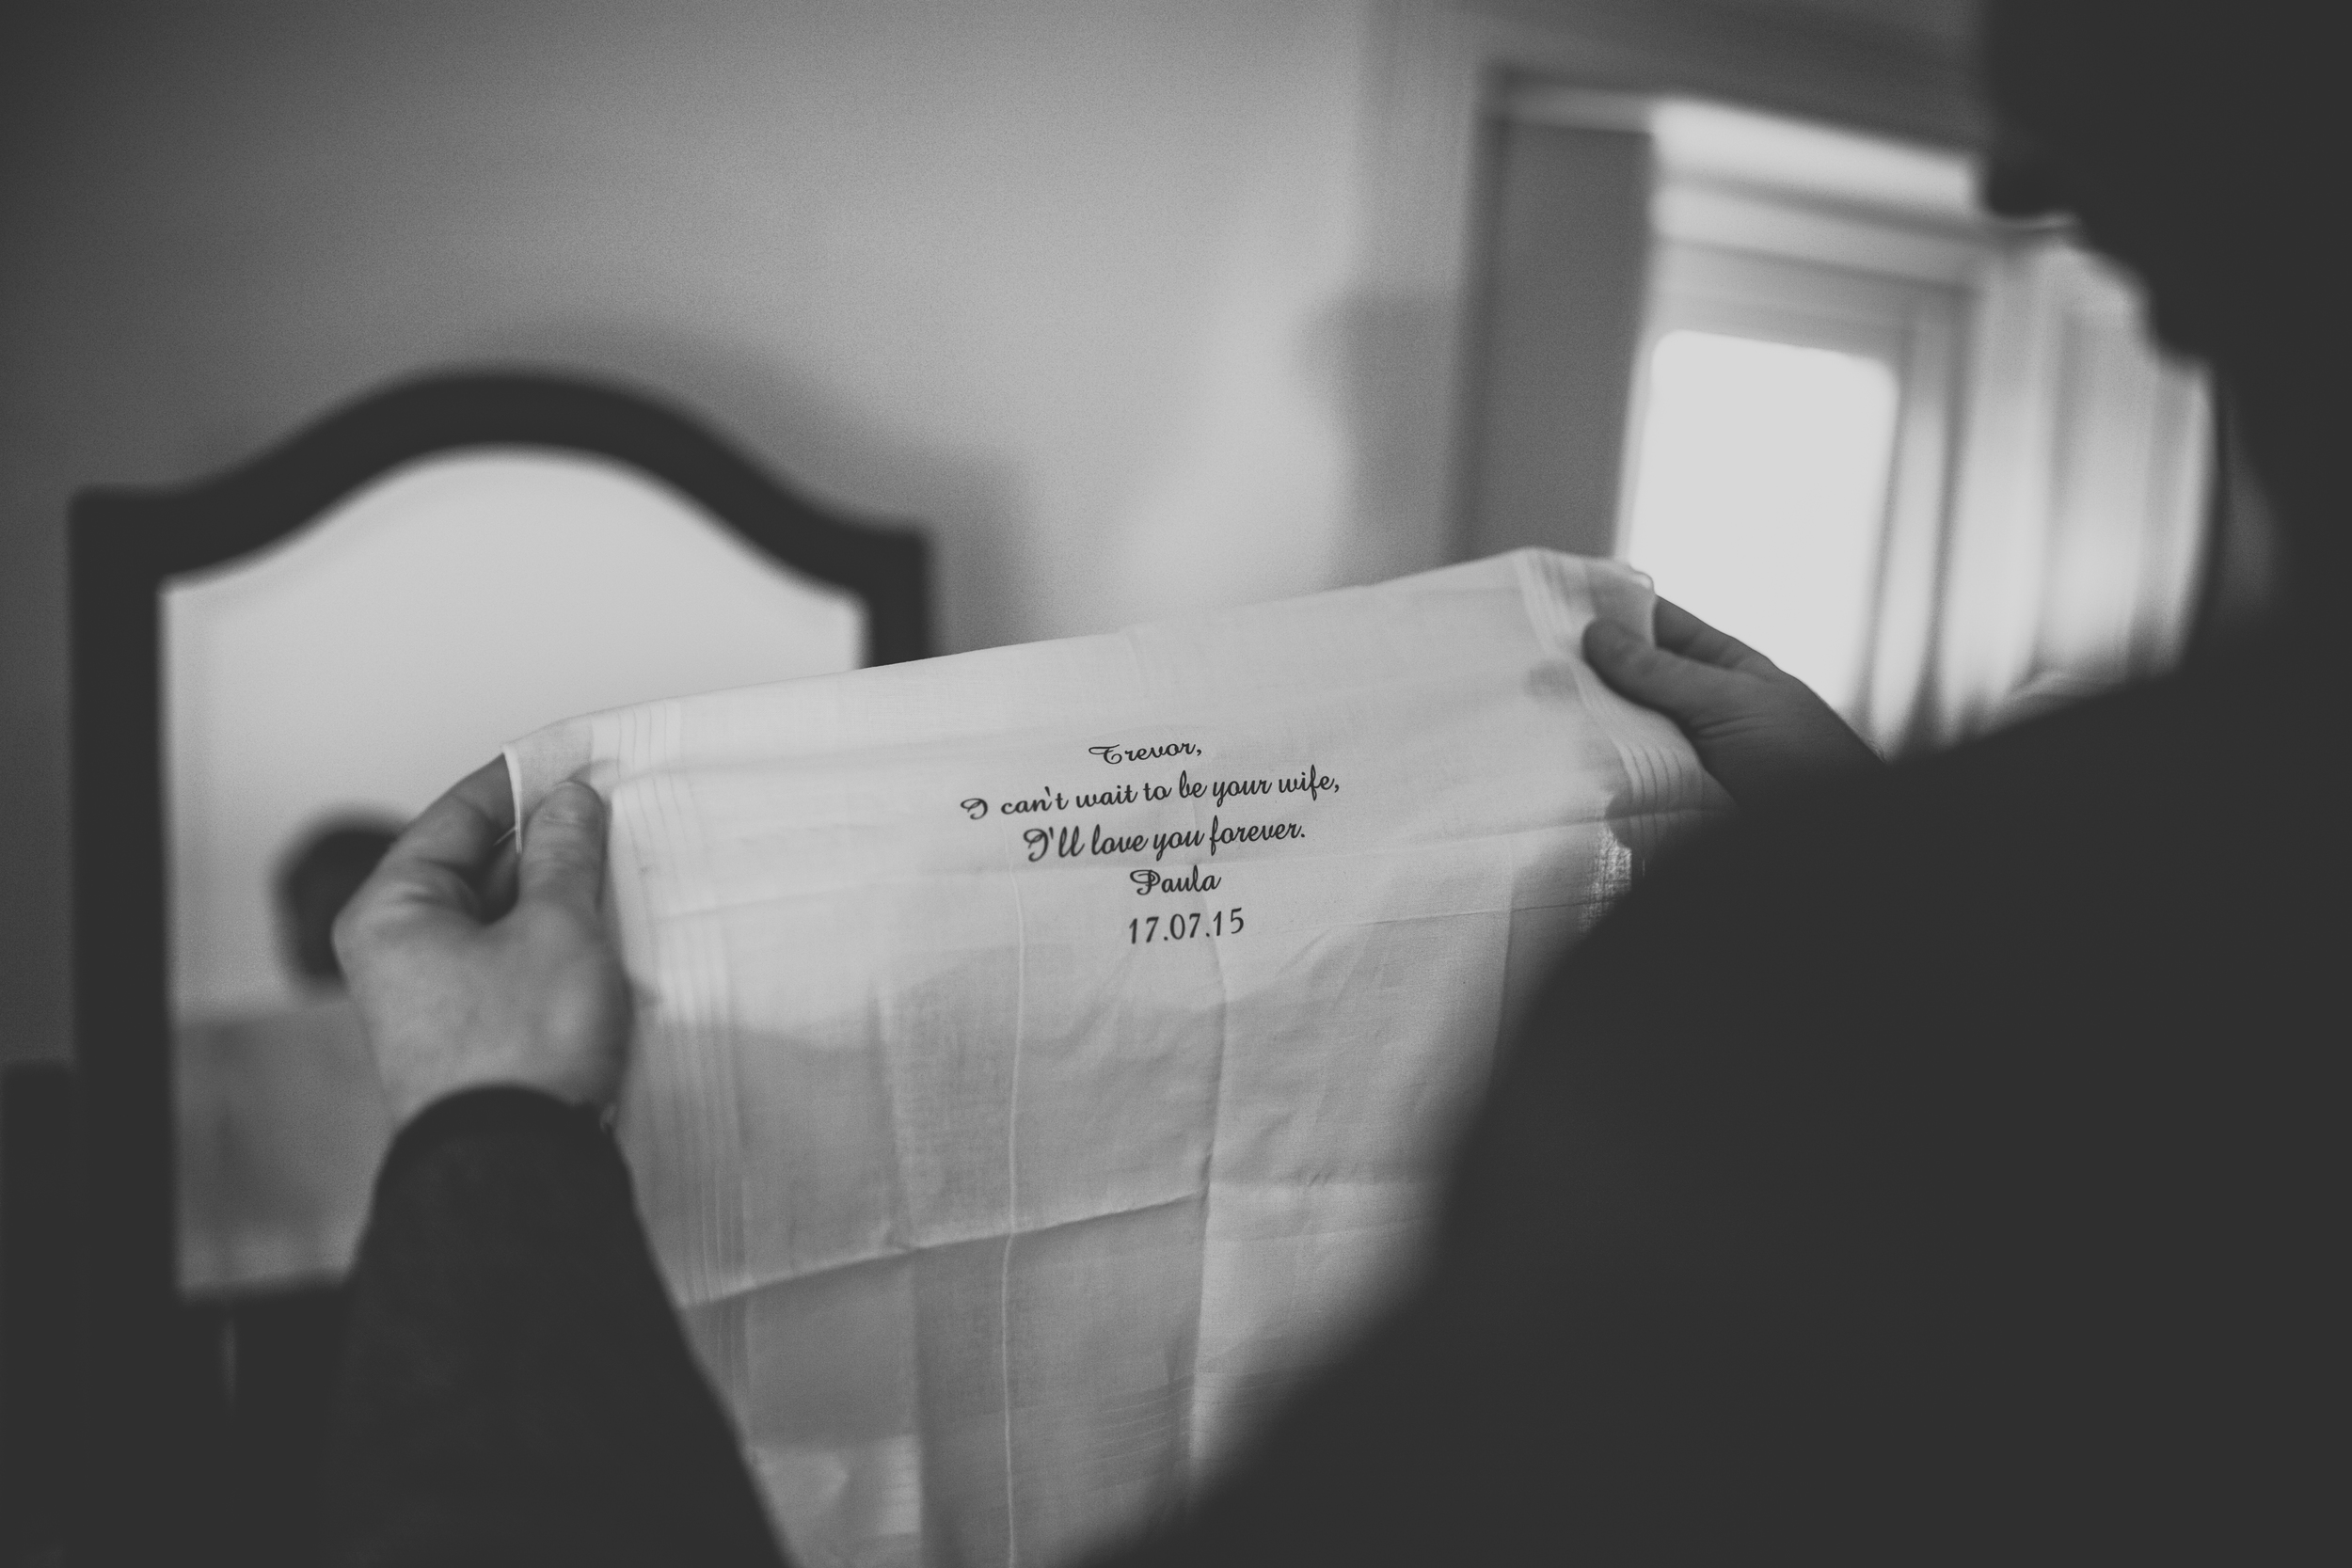 Trevor,
I can't wait to be your wife,
I'll love you forever.
Paula
17.07.15